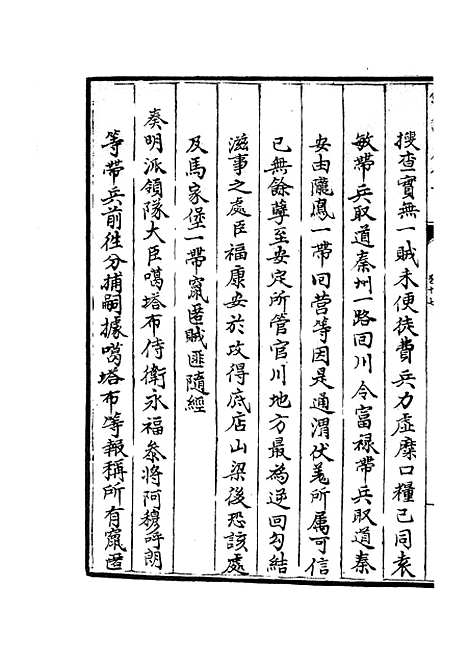 卷十七
搜查實無一賊未便徒費兵力虛糜口糧已同袁
敏帶兵取道秦州一路回川令富祿帶兵取道秦
安由隴鳳一帶回營等因是通渭伏羗所属可信
已無餘孽至安定所管官川地方最為逆回勾結
滋事之處臣福康安於攻得底店山梁後恐該處
及馬家堡一帶竄匿賊匪隨經
奏明派領隊大臣噶塔布侍衛永福叅將阿穆呼朗
等帶兵前往分捕嗣據噶塔布等報稱所有竄匿